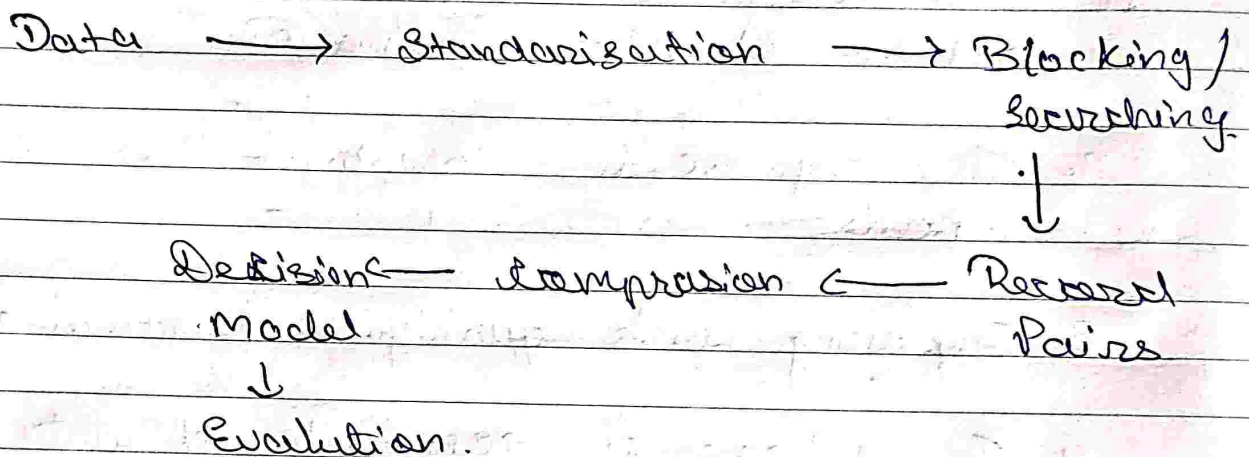 Data → Standarisation → Blocking/
Searching.
↓
Decision ← Comprasion ← Record
Model Pairs
↓
Evalution.